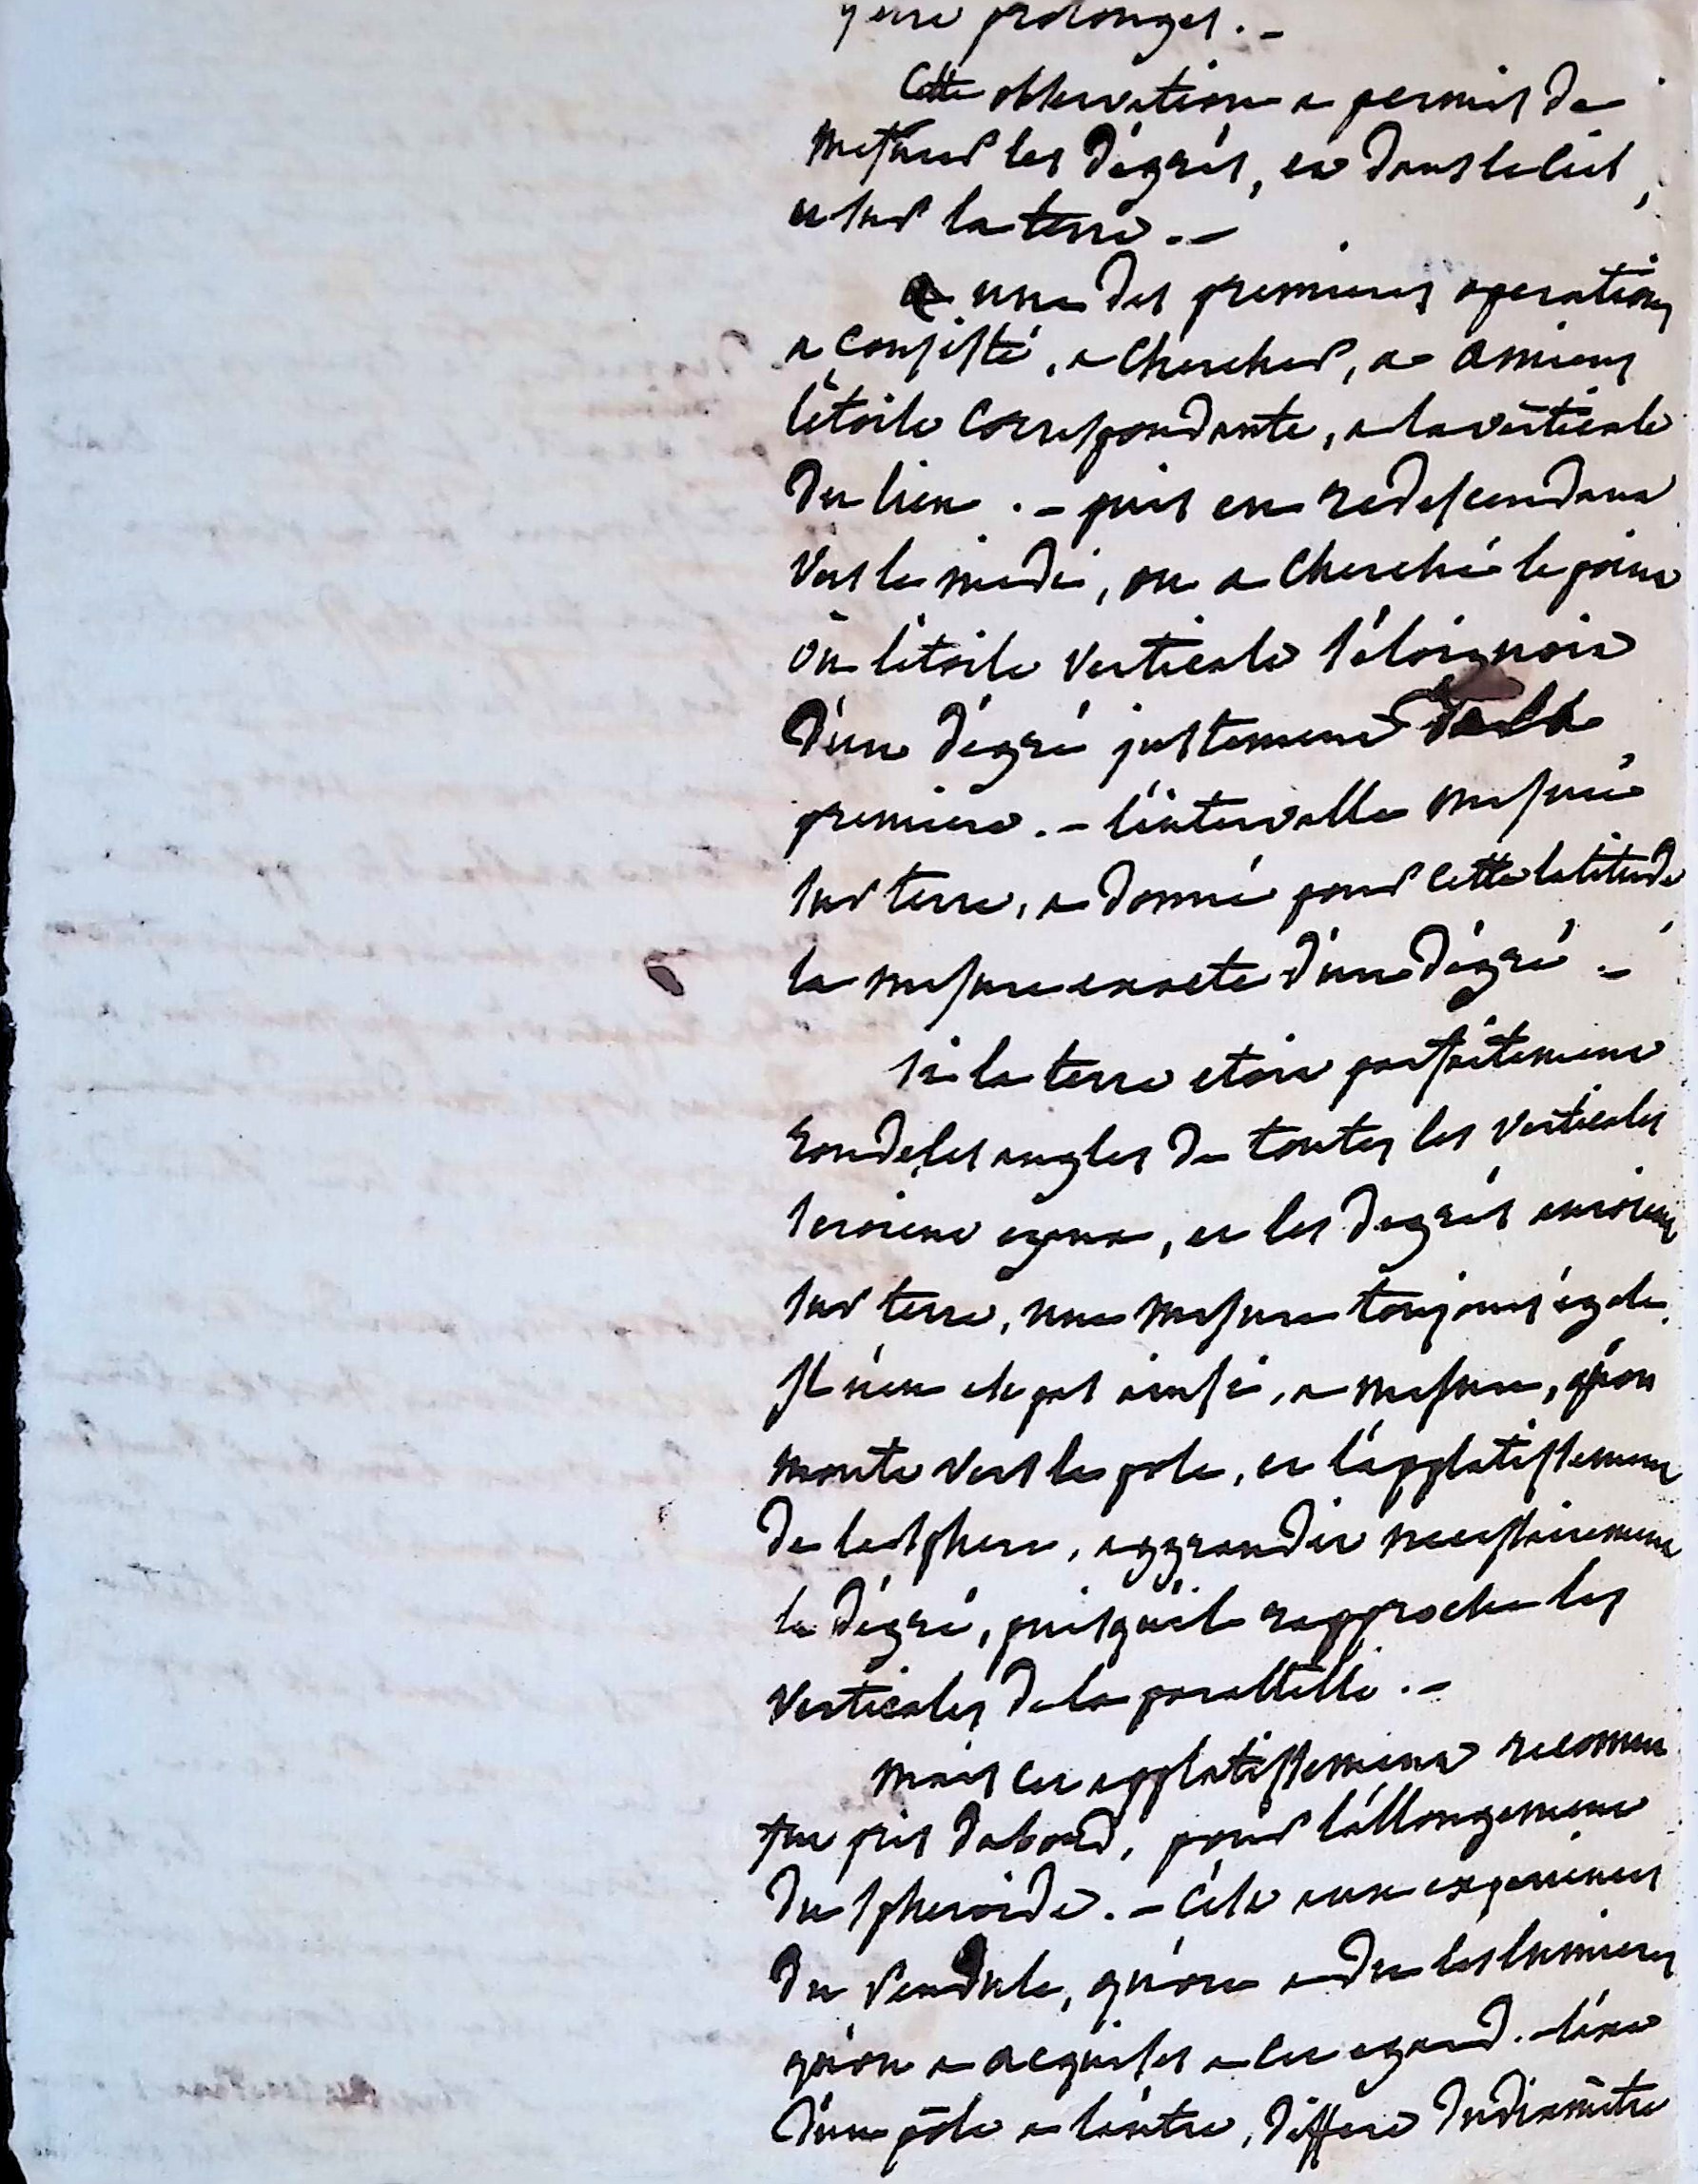 prolonger. –
Cette observation a permis de
mesurer les dégrés, et dans le ciel,
et sur la terre. –
une des premieres operations
a consisté, a chercher, a amiens
l'étoile correspondante, a la vérticale
du lieu. – puis en redescendant
vers le midi, on a cherché le point
où l'étoile verticale s'éloignoit
d'un dégré justement de la
premiere. – l'intervalle mesuré
sur terre, a donné pour cette latitude
la mesure exacte d'un dégré. –
si la terre etoit parfaitement
ronde, les angles de toutes les verticales
seroient egaux, et les degrés auroient
sur terre, une mesure toujours égale.
Il n'en est pas ainsi, a mesure, qu'on
monte vers le pole, et l'applatissement
de la sphere, aggrandit necessairement
le dégré, puisqu'il rapproche les
verticales de la parallelle. –
mais cet applatissement reconnu
fut pris d'abord, pour l'allongement
du spheroide. – c'est aux experiences
du Pendule, qu'on a du les lumieres
qu'on a acquises a cet egard. – l'axe
d'un pôle a l'autre, differe du diamètre